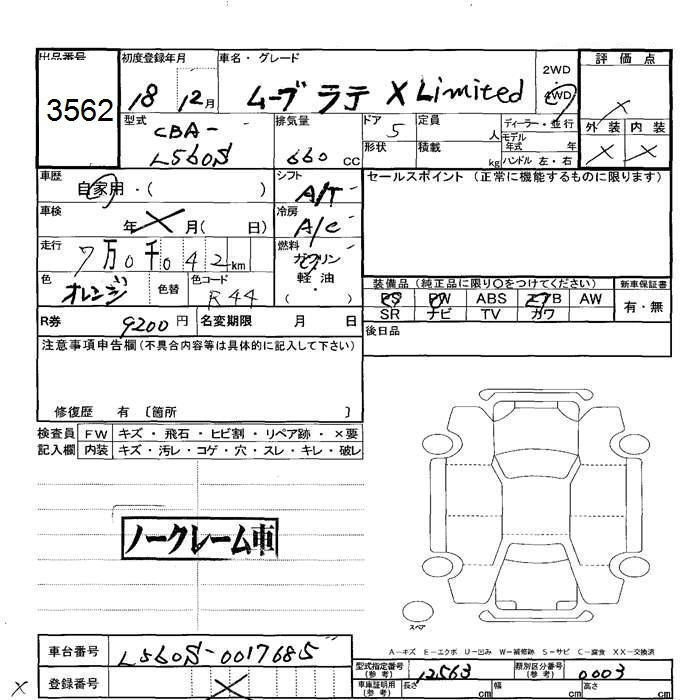 出品番号 初度登録年月 車名・グレード 評価点
3562 18 12月 ムーブ ラテ X Limited 2WD 4WD ×
型式 CBA- L560S 排気量 660 cc ドア 5 定員 人 ディーラー・並行 外装 内装
形状 積載 kg モデル年式 年 ハンドル 左・右 × ×
車歴 自家用・( ) シフト A/T セールスポイント (正常に機能するものに限ります)
車検 年 × 月( 日) 冷房 A/C
走行 7万0千042km 燃料 ガソリン
軽油
・( )
色 オレンジ 色替 色コード R44 装備品 (純正品に限り○をつけてください) 新車保証書
PS PW ABS エアB AW 有・無
SR ナビ TV カワ
R券 9200円 名変期限 月 日 後日品
注意事項申告欄 (不具合内容等は具体的に記入して下さい)
修復歴 有 〔箇所 〕
検査員 FW キズ・飛石・ヒビ割・リペア跡・×要
記入欄 内装 キズ・汚レ・コゲ・穴・スレ・キレ・破レ
ノークレーム車
スペア
A−キズ E−エクボ U−凹み W−補修跡 S−サビ C−腐食 XX−交換済
車台番号 L560S-0017685 型式指定番号(参考) 12563 類別区分番号(参考) 0003
× 登録番号 × 車庫証明用(参考) 長さ cm 幅 cm 高さ cm